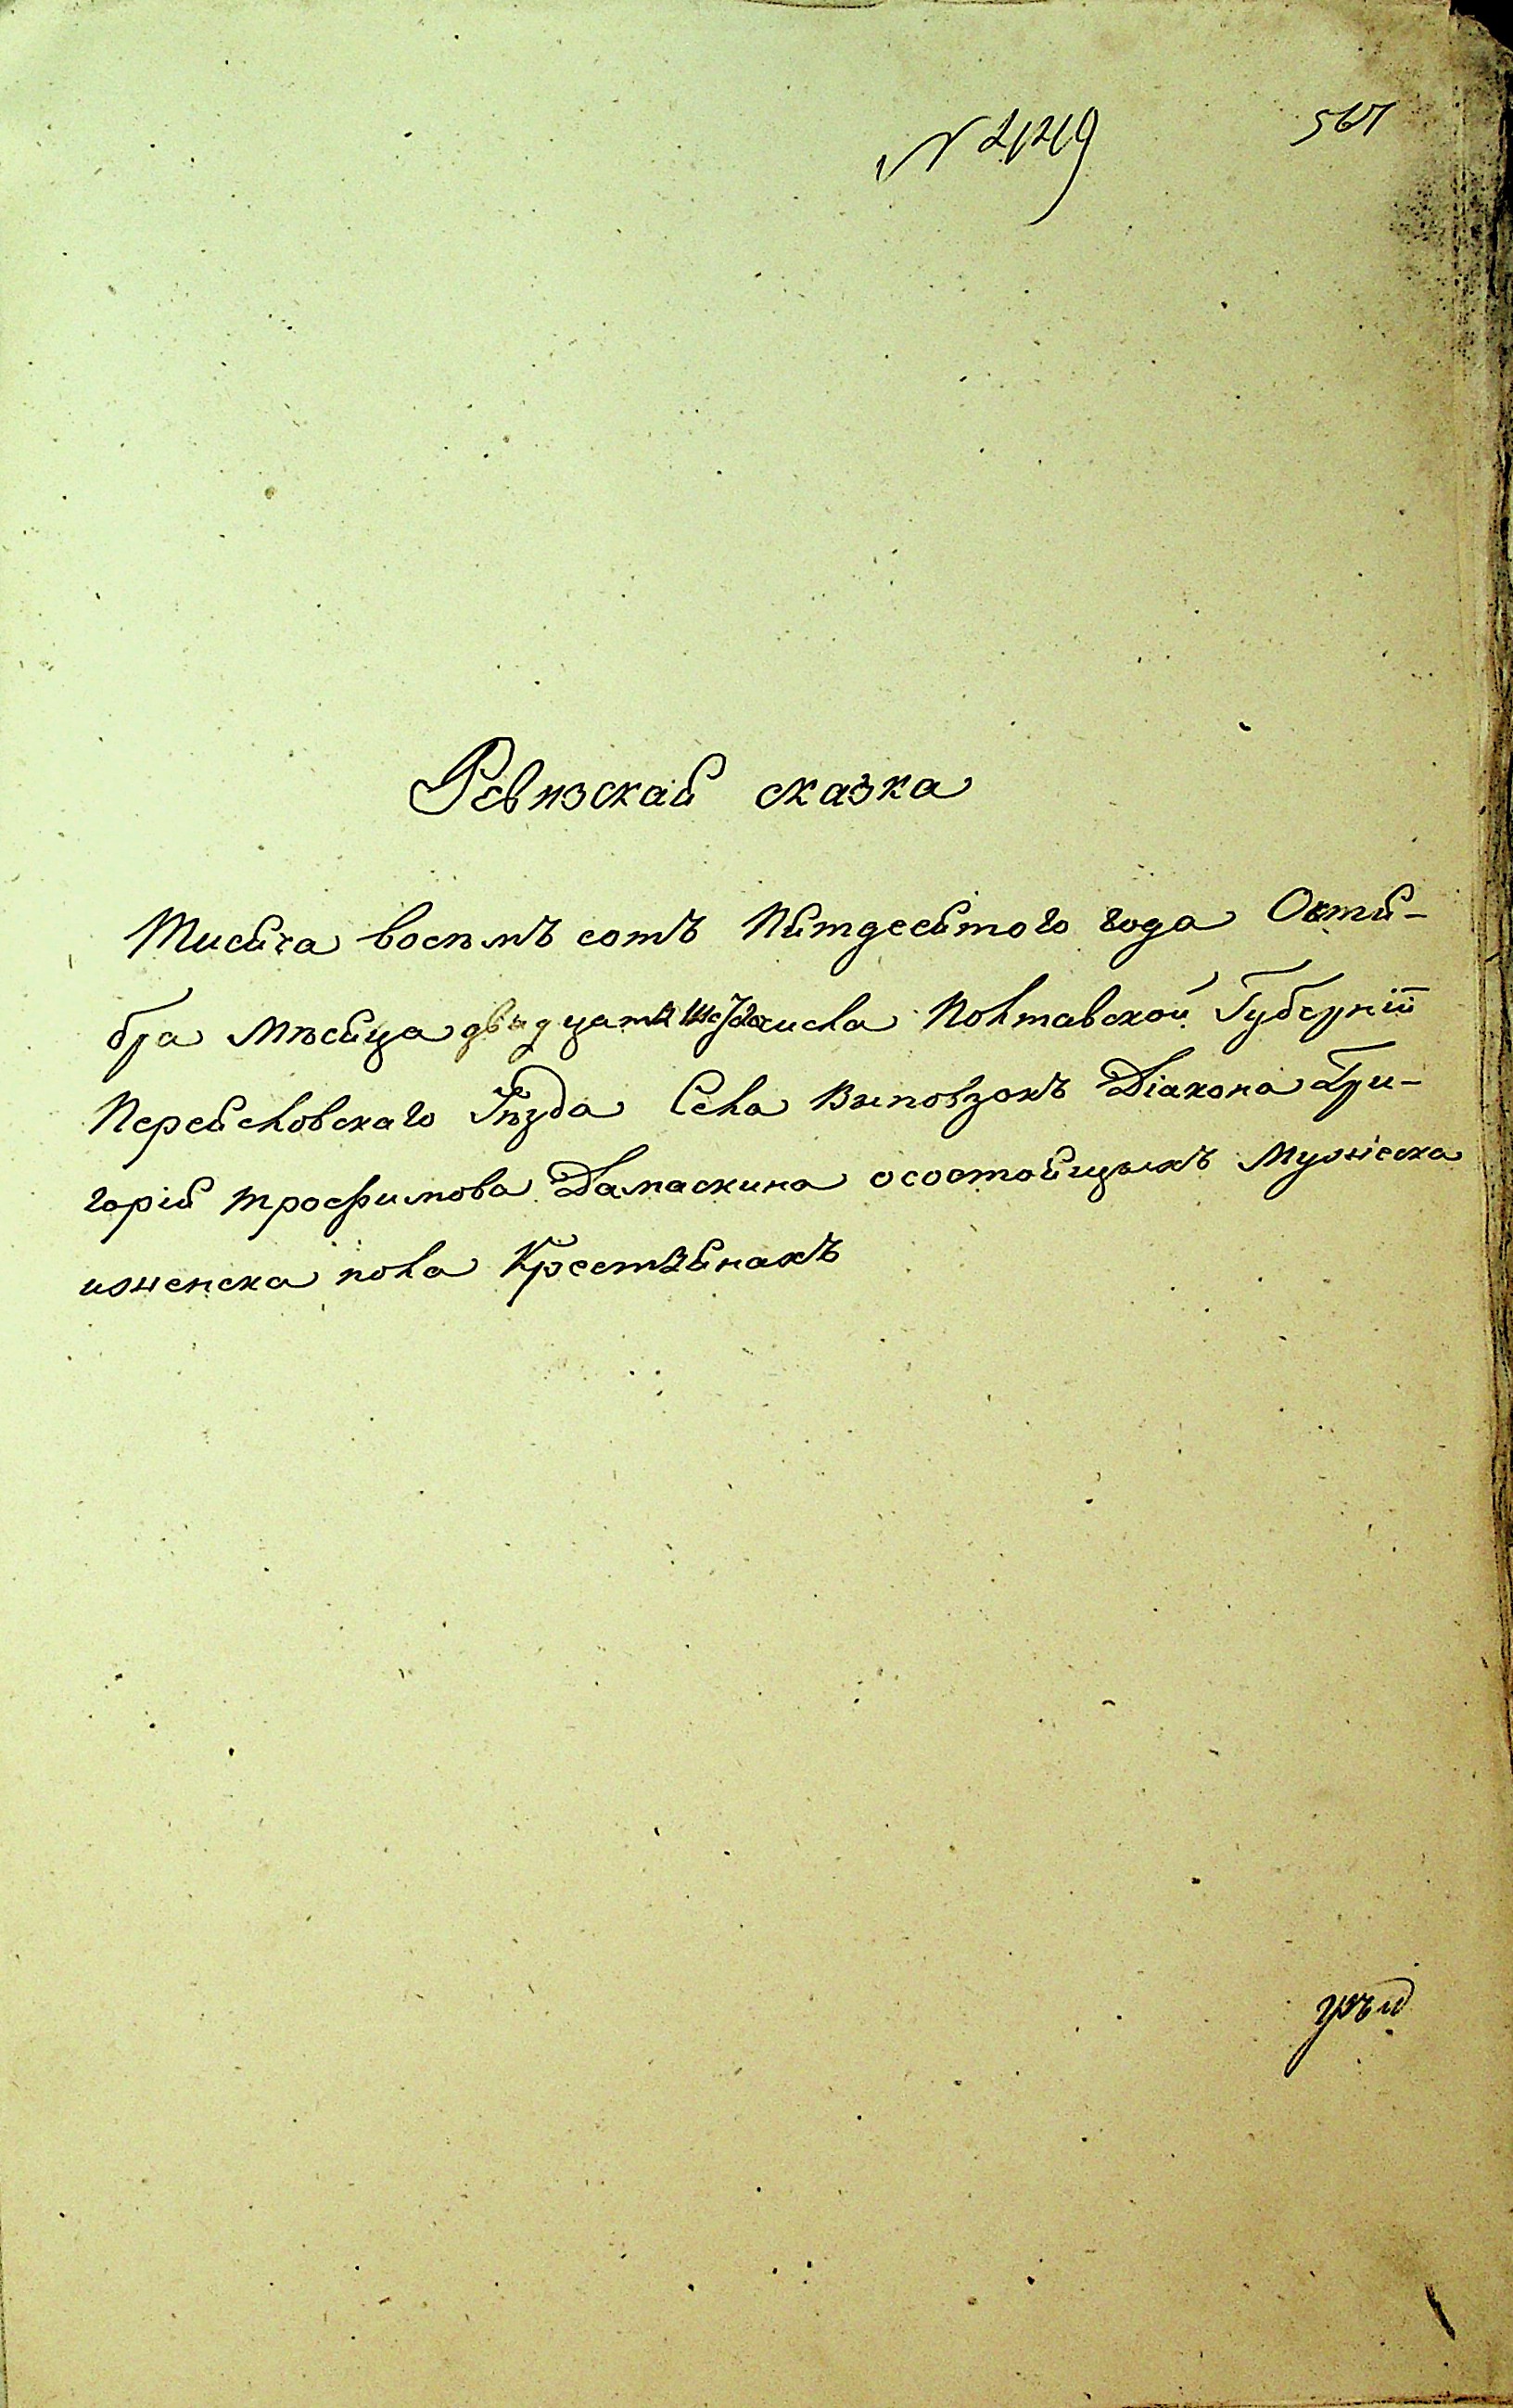 N 449 567
Ревизская сказка
Тисяча восемъ сотъ Пятдесятого года Октя-
бра Мѣсяца двадцать числа Полтавской Губерніи
Переясловскаго уѣзда Села Выповзокъ Діакона Гри-
горія трофимова Дамаскина осостоящыхъ Мужеска
иженска пола Крестьянахъ